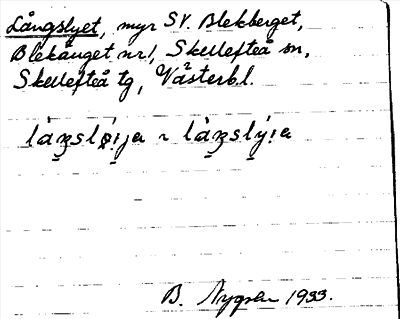 Långslyet, myr SV. Blekberget,
Blekånget nr 1, Skellefteå sn,
Skellefteå tg, Västerb.l.
làŋslø̀i̯ja ~ làŋslýi̯a
B. Nygren 1933.